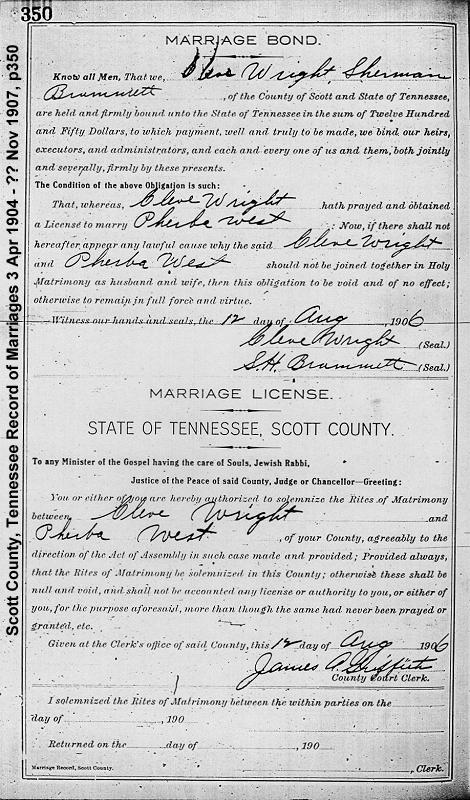 350
Scott County, Tennessee Record of Marriages 3 Apr 1904 - ?? Nov 1907, p350
MARRIAGE BOND.
Know all Men, That we, Cleve Wright Sherman
Brammett, of the County of Scott and State of Tennessee,
are held and firmly bound unto the State of Tennessee in the sum of Twelve Hundred
and Fifty Dollars, to which payment, well and truly to be made, we bind our heirs,
executors, and administrators, and each and every one of us and them, both jointly
and severally, firmly by these presents.
The Condition of the above Obligation is such:
That, whereas, Cleve Wright hath prayed and obtained
a License to marry Pherba West; Now, if there shall not
hereafter appear any lawful cause why the said Cleve Wright
and Pherba West should not be joined together in Holy
Matrimony as husband and wife, then this obligation to be void and of no effect;
otherwise to remain in full force and virtue.
Witness our hands and seals, the 12 day of Aug, 1906
Cleve Wright (Seal.)
S.H. Brammett (Seal.)
MARRIAGE LICENSE.
STATE OF TENNESSEE, SCOTT COUNTY.
To any Minister of the Gospel having the care of Souls, Jewish Rabbi,
Justice of the Peace of said County, Judge or Chancellor—Greeting:
You or either of you are hereby authorized to solemnize the Rites of Matrimony
between Cleve Wright and
Pherba West, of your County, agreeably to the
direction of the Act of Assembly in such case made and provided; Provided always,
that the Rites of Matrimony be solemnized in this County; otherwise these shall be
null and void, and shall not be accounted any license or authority to you, or either of
you, for the purpose aforesaid, more than though the same had never been prayed or
granted, etc.
Given at the Clerk's office of said County, this 12 day of Aug 1906
James A. Griffith
County Court Clerk.
I solemnized the Rites of Matrimony between the within parties on the
day of , 190
Returned on the day of , 190
Marriage Record, Scott County.
, Clerk.